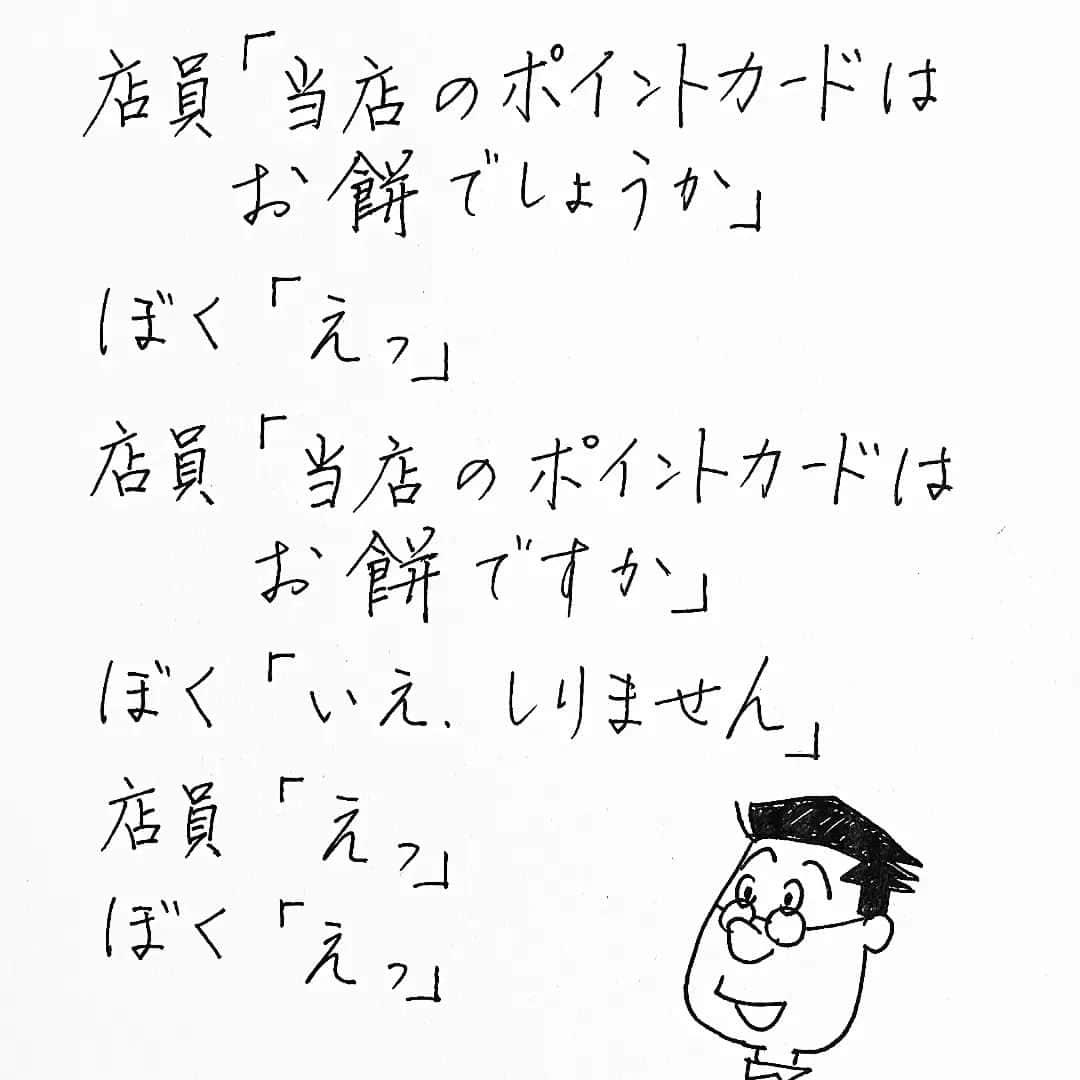 店員「当店のポイントカードは
お餅でしょうか」
ぼく「えっ」
店員「当店のポイントカードは
お餅ですか」
ぼく「いえ、しりません」
店員「えっ」
ぼく「えっ」